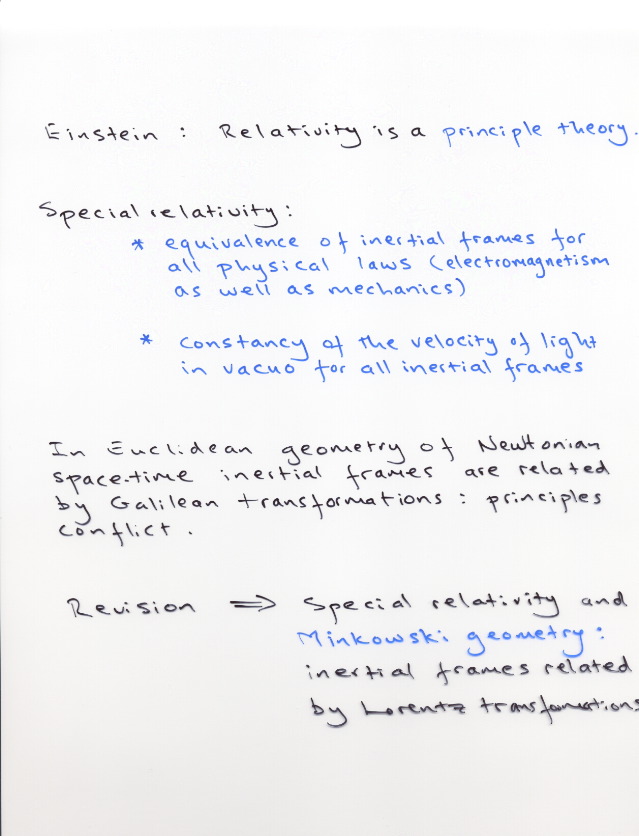 Einstein : Relativity is a principle theory.
Special relativity :
* equivalence of inertial frames for
all physical laws (electromagnetism
as well as mechanics)
* constancy of the velocity of light
in vacuo for all inertial frames
In Euclidean geometry of Newtonian
space-time inertial frames are related
by Galilean transformations : principles
conflict .
Revision ⇒ Special relativity and
Minkowski geometry :
inertial frames related
by Lorentz transformations